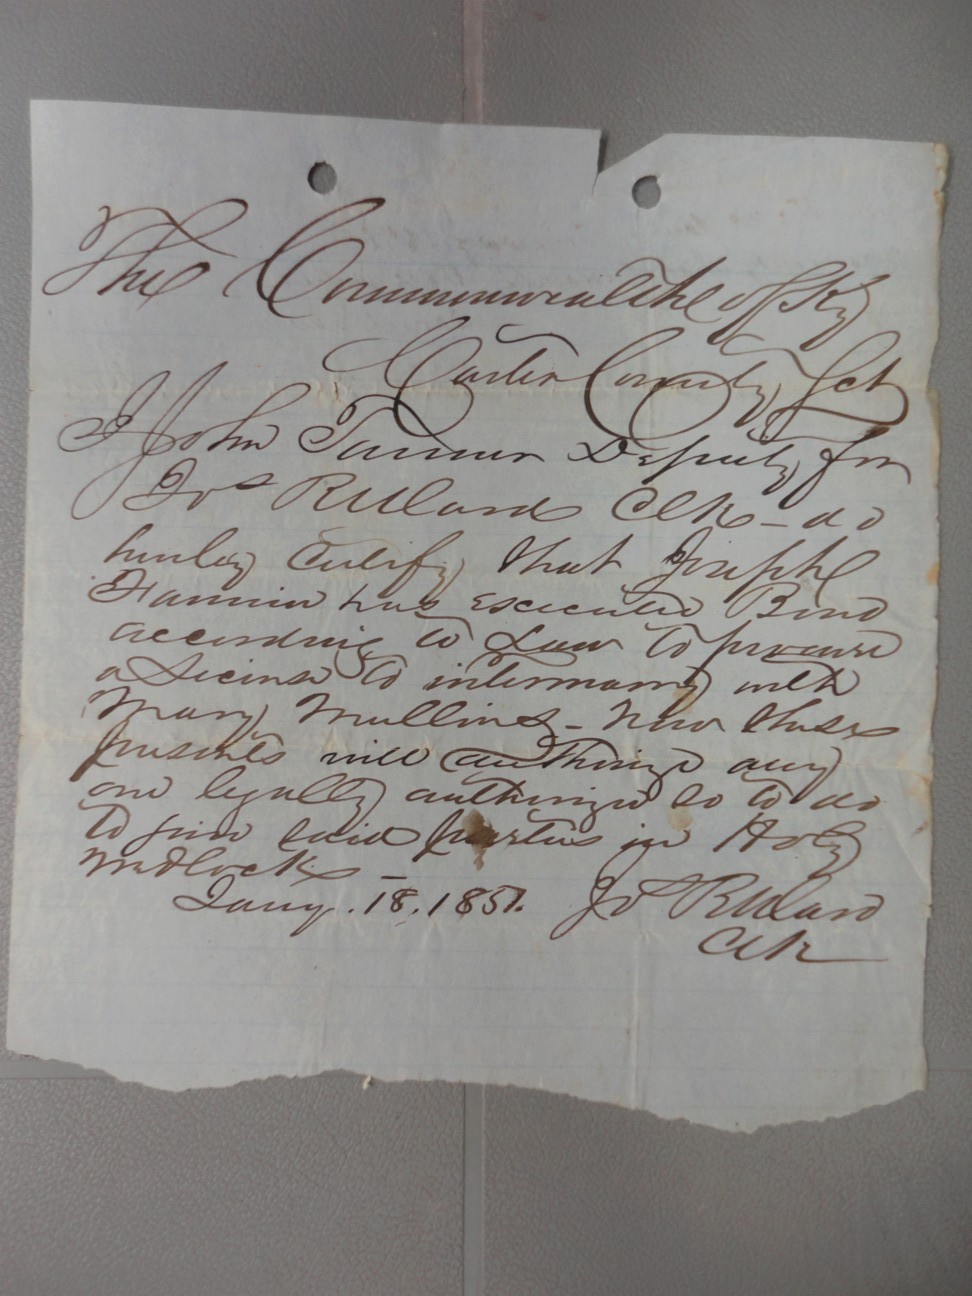 The Commonwealthe of Ky
Carter County Sct
I John Tanner Deputy for
Jos R Ward Clk - do
hereby certify that Joseph
Fannin has executed Bond
according to Law to procure
a License to intermarry with
Mary Mullins - Now these
presents will authorize any
one legally authorized so to do
to join said parties in Holy
Wedlock
Jany. 18. 1851. Jos R Ward
Clk